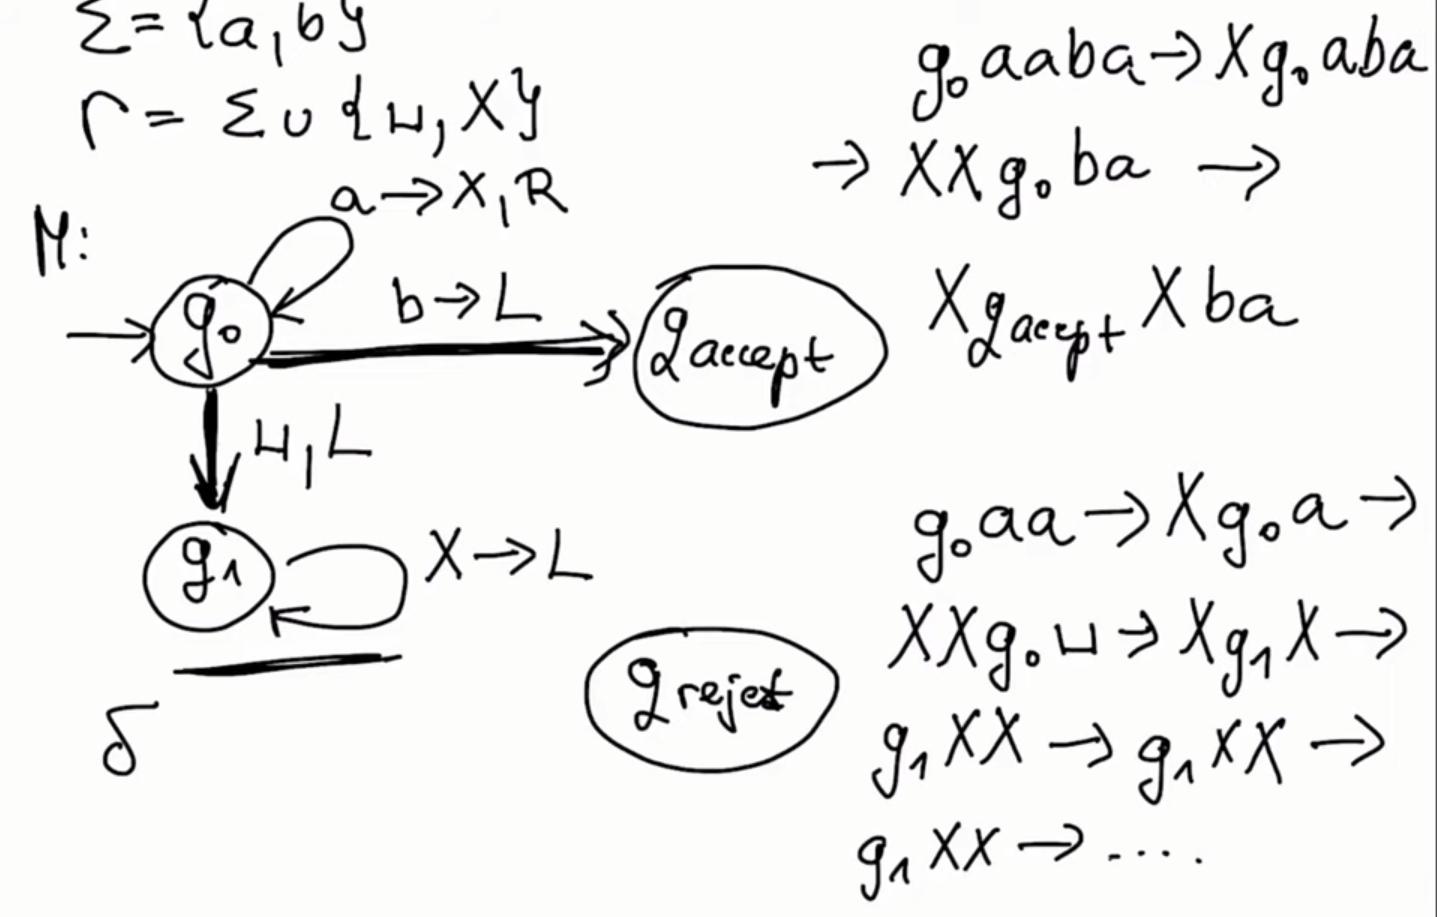 Σ = {a, b}
Γ = Σ ∪ {⊔, X}
M:
a → X, R
q₀
b → L
q accept
⊔, L
q₁
X → L
q reject
δ
q₀aaba → Xq₀aba
→ XXq₀ba →
Xq_accept Xba
q₀aa → Xq₀a →
XXq₀⊔ → Xq₁X →
q₁XX → q₁XX →
q₁XX → ....